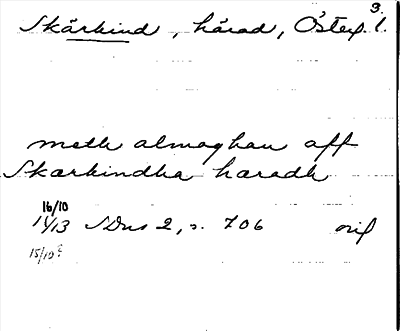 3.
Skärkind, härad, Österg. l.
meth almoghan aff
Skærkindha hæradh
16/10
14/13 SDns 2, s. 706 orig
15/10?